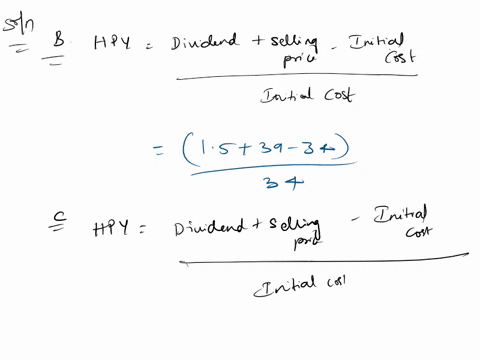 Soln
B HPY = Dividend + selling price - Initial cost
Initial cost
= (1.5 + 39 - 34)
34
C HPY = Dividend + selling price - Initial cost
Initial cost